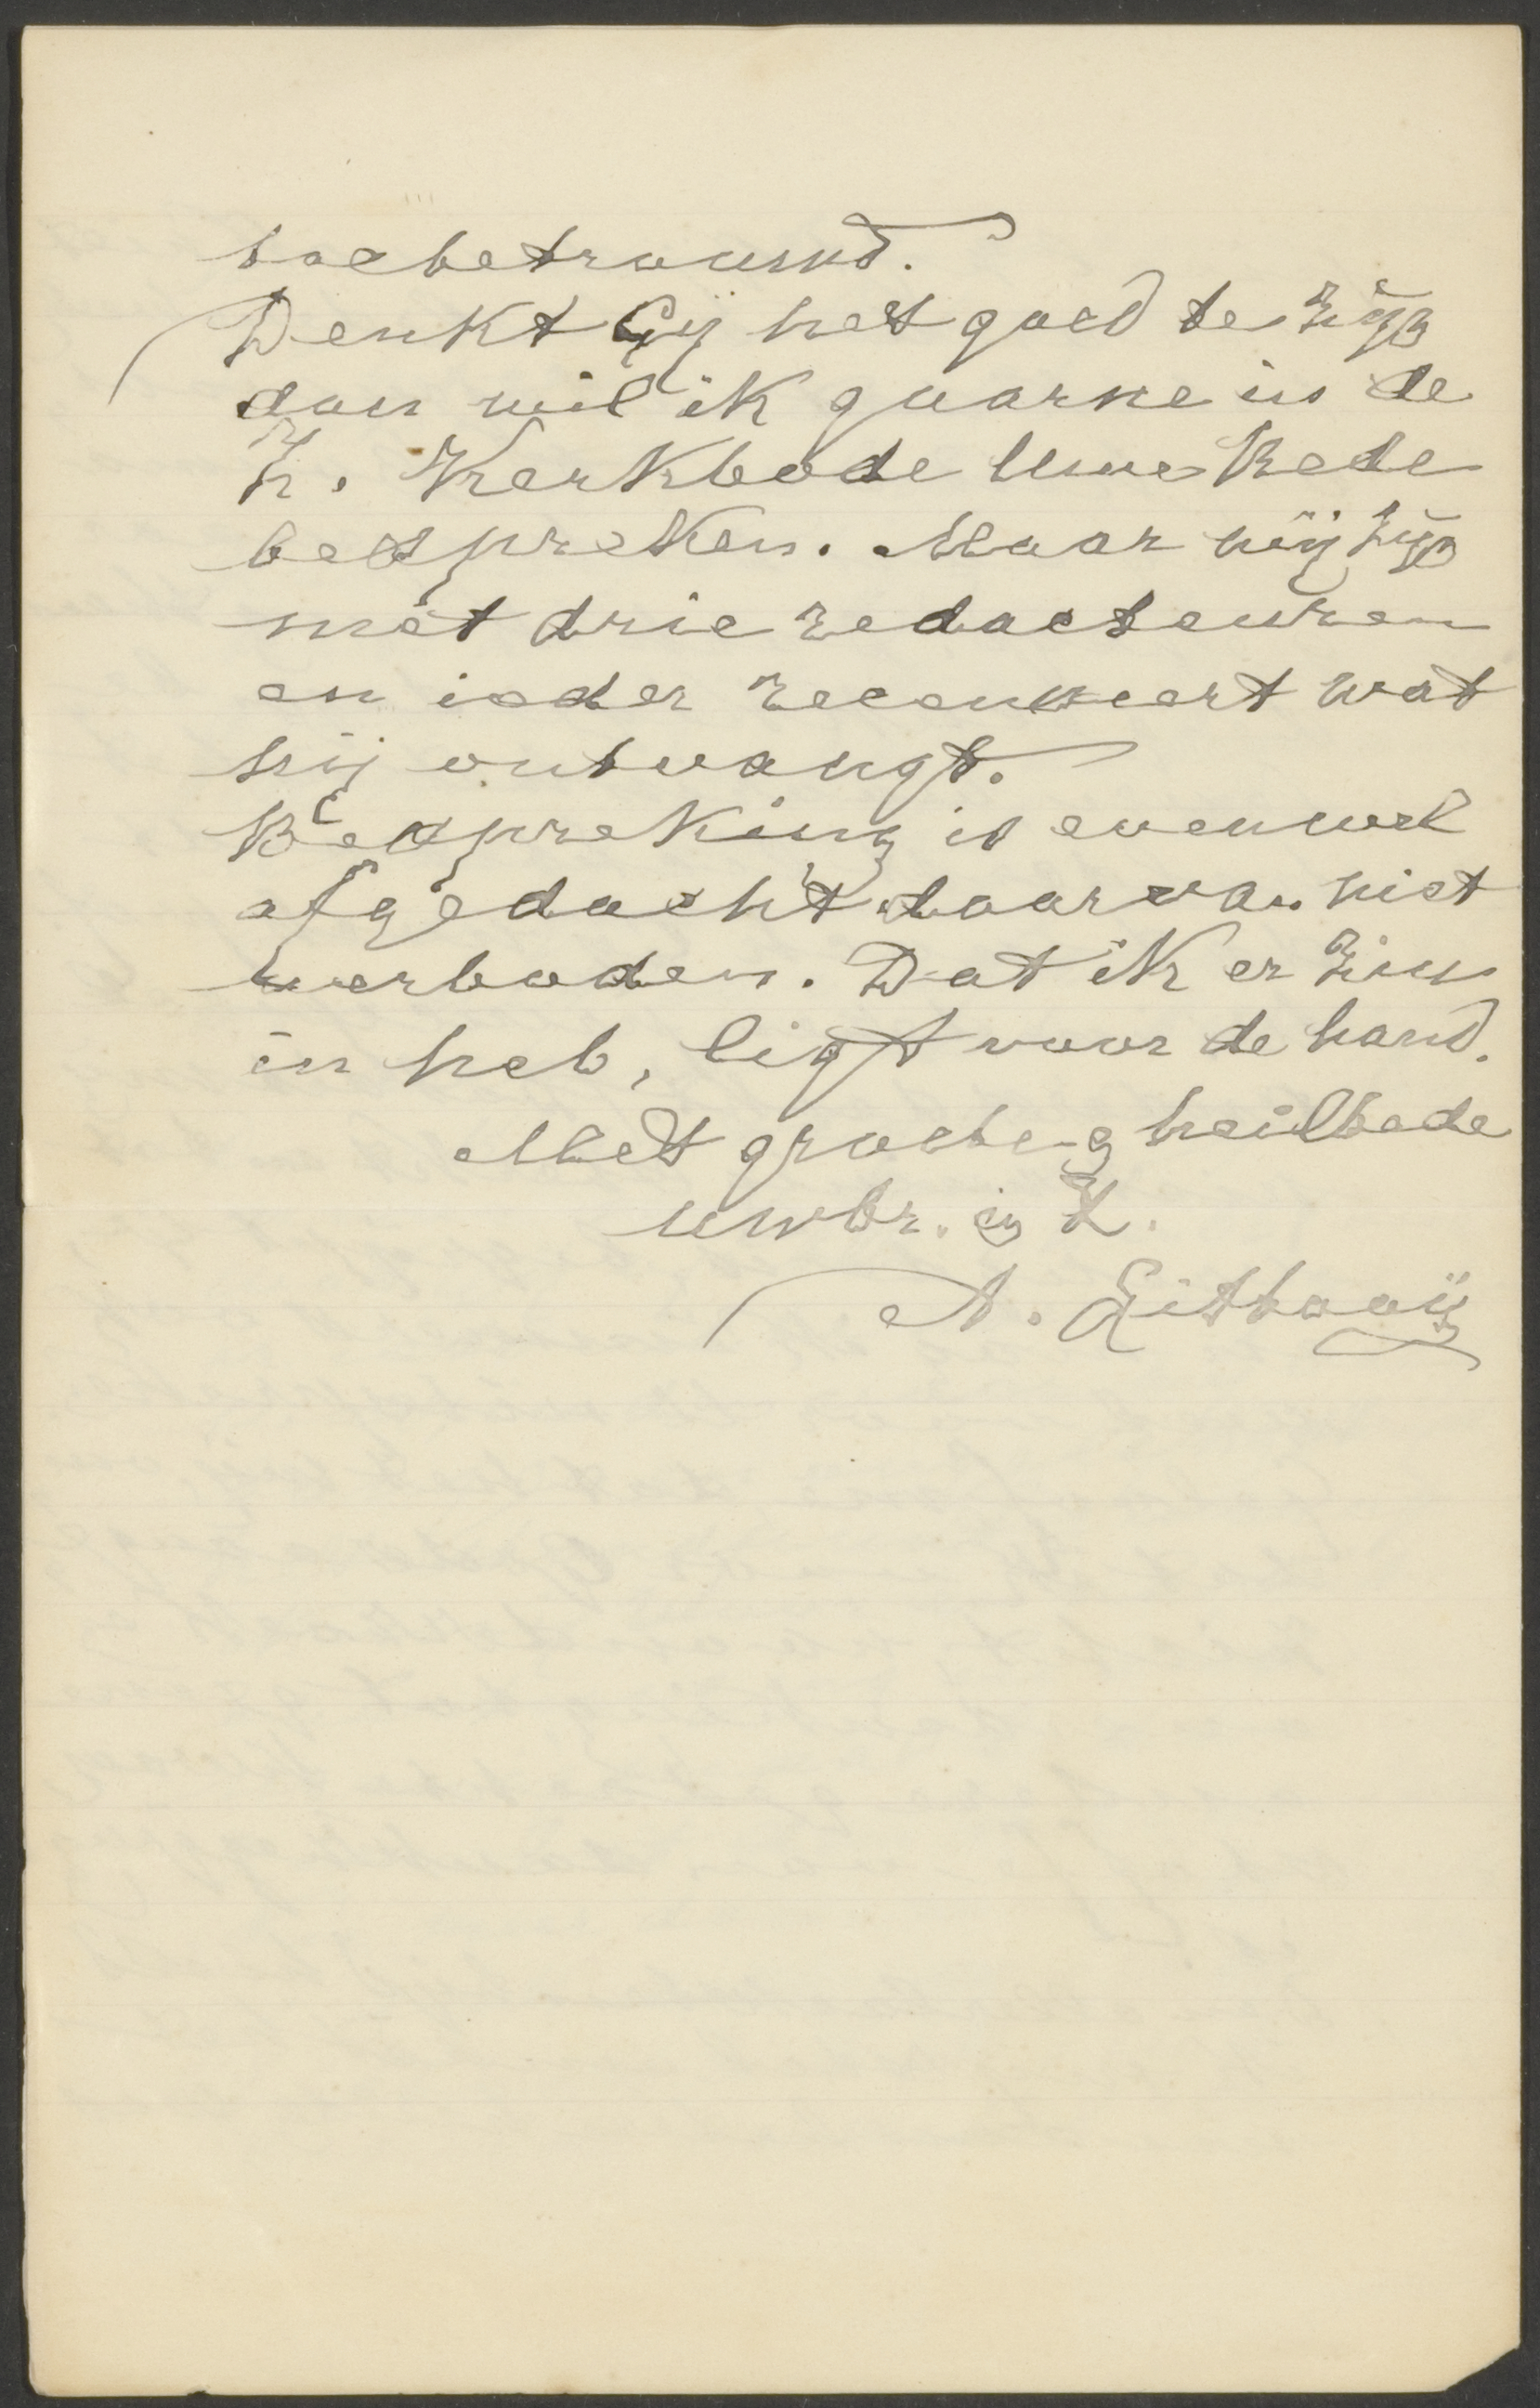 toebetrouwd.
Denkt Gij het goed te zijn
dan wil ik gaarne in de
Z. Kerkbode Uwe Rede
bespreken. Maar wij zijn
met drie redacteuren
en ieder recenseert wat
hij ontvangt.
Bespreking is evenwel
afgedacht daarvan niet
verboden. Dat ik er zin
in heb, ligt voor de hand.
Met groet en heilbede
uw br. in X.
A. Littooij